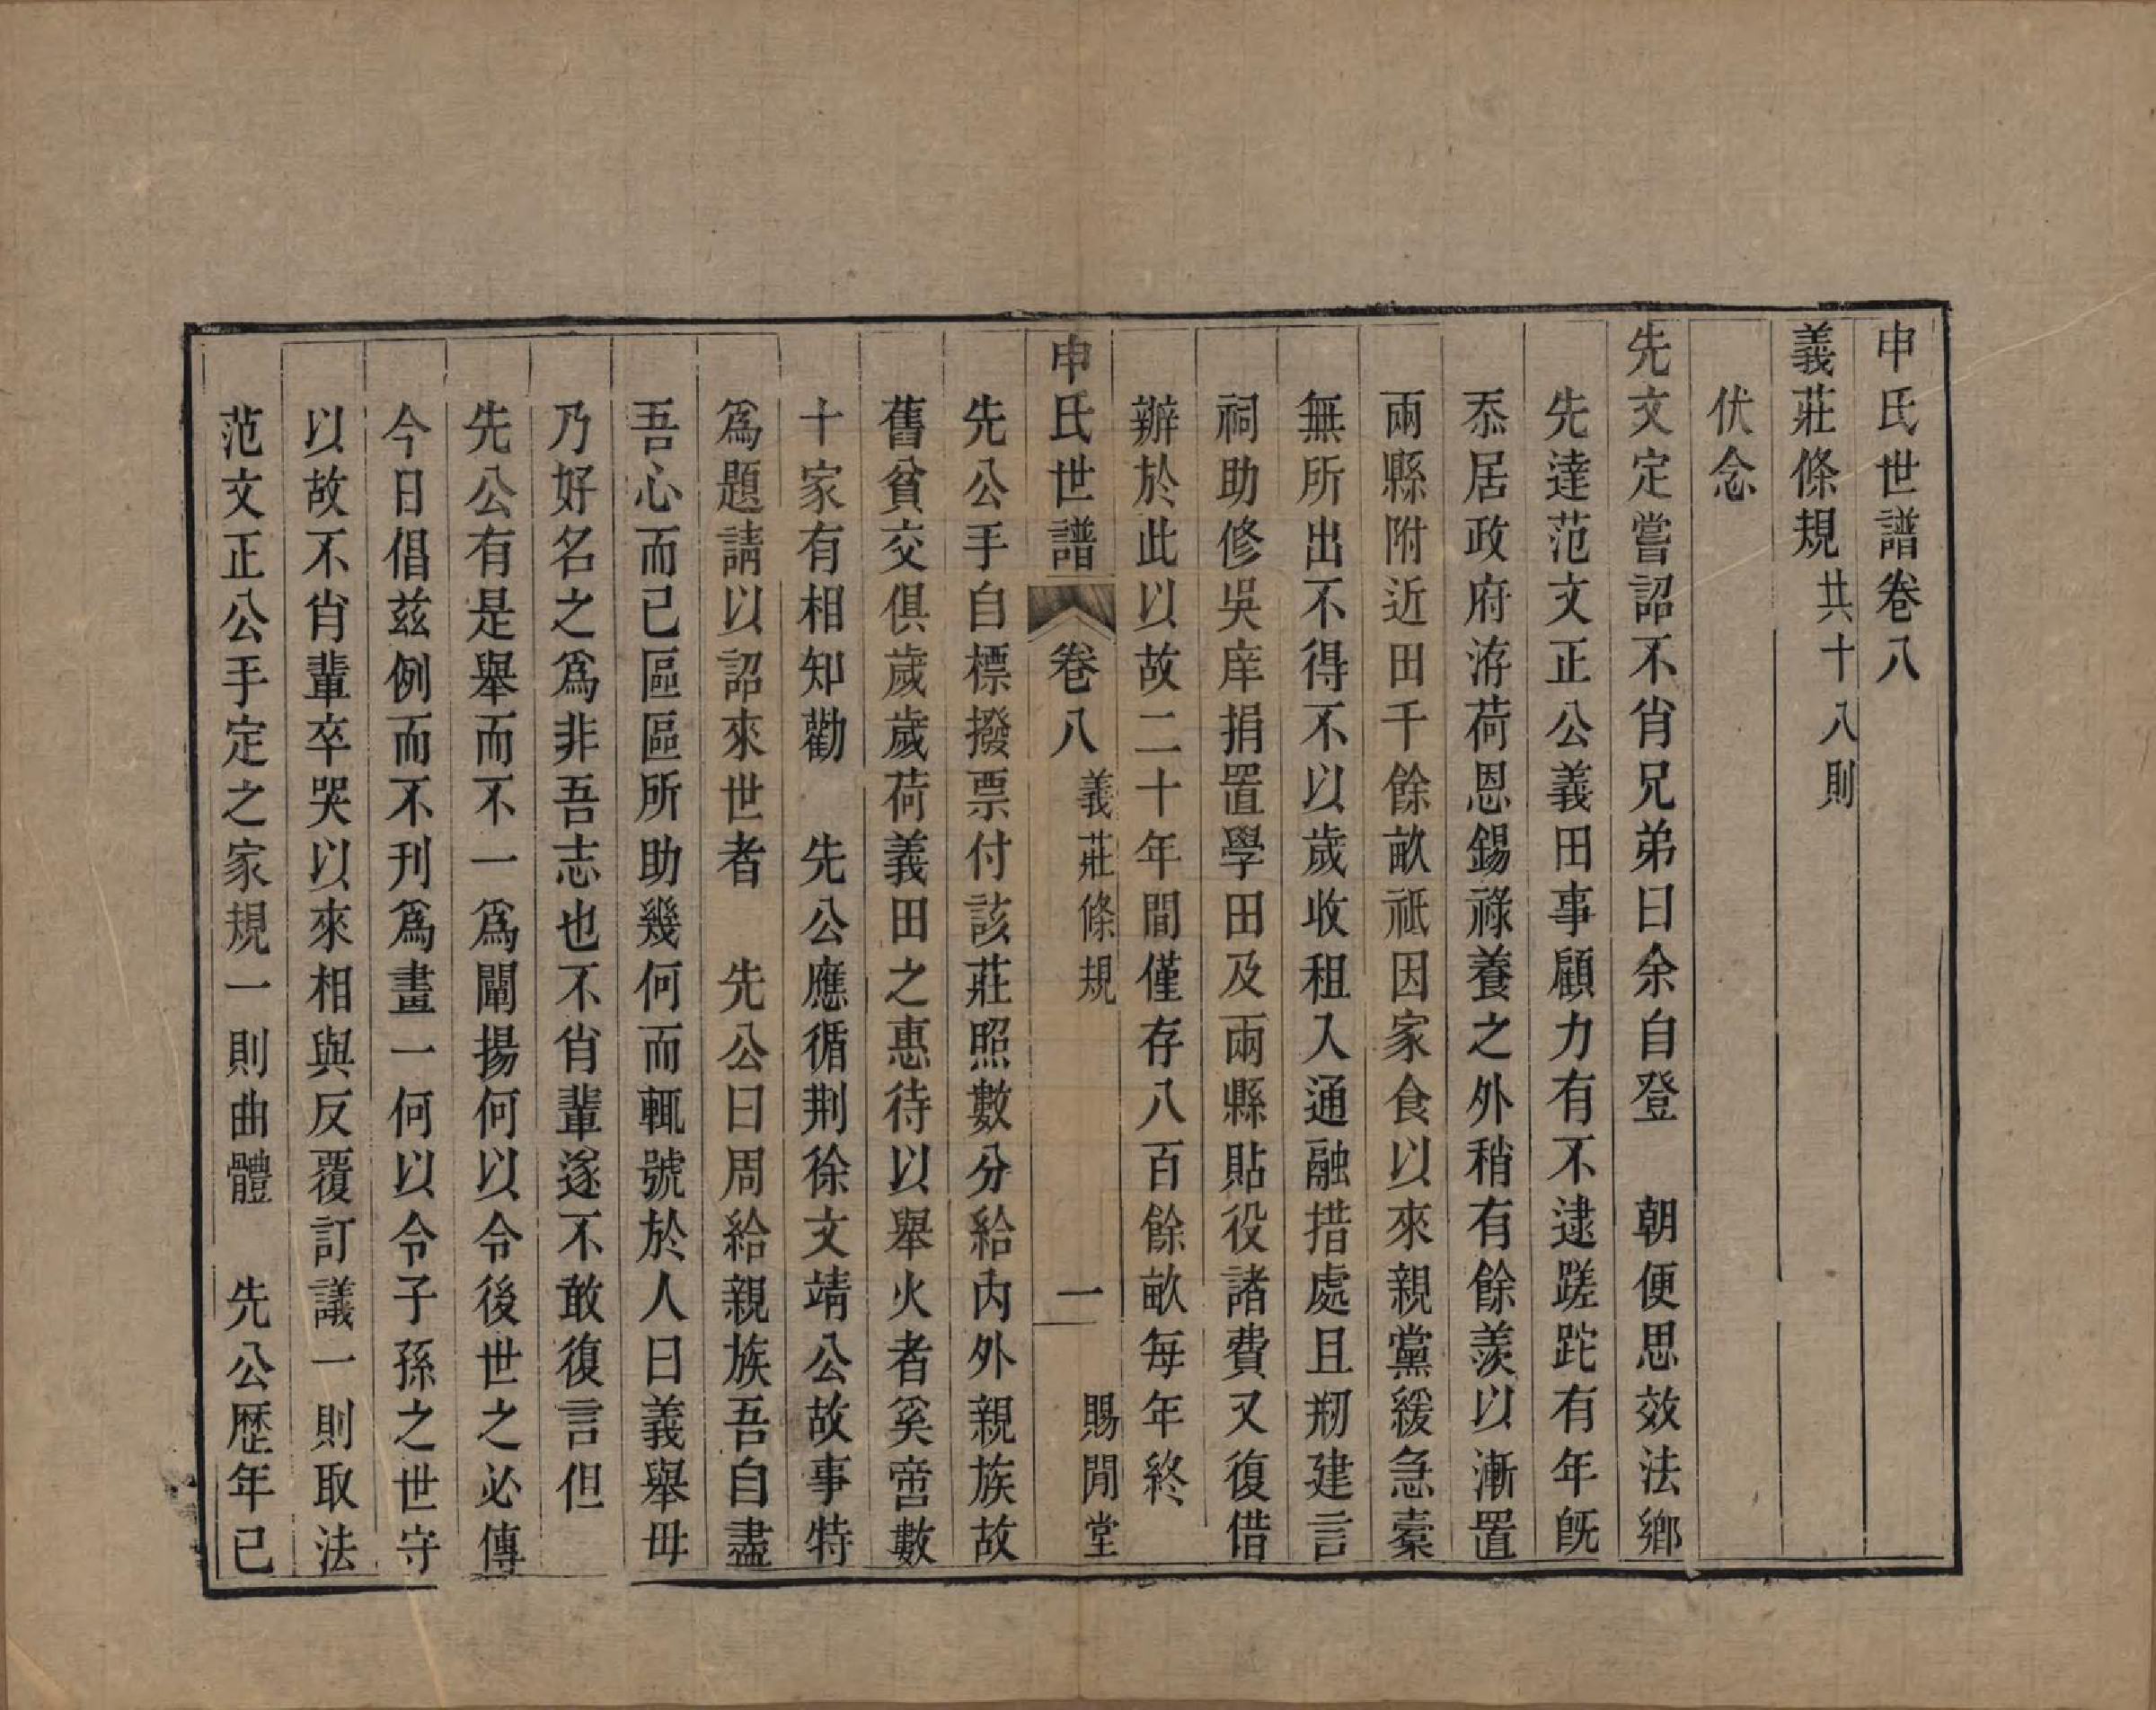 申氏世譜卷八
義莊條規共十八則
伏念
先文定嘗詔不肖兄弟曰余自登　朝便思效法鄉
先達范文正公義田事顧力有不逮蹉跎有年旣
忝居政府洊荷恩錫祿養之外稍有餘羨以漸置
兩縣附近田千餘畝祇因家食以來親黨緩急槖
無所出不得不以歲收租入通融措處且剏建言
祠助修吳庠捐置學田及兩縣貼役諸費又復借
辦於此以故二十年間僅存八百餘畝每年終
申氏世譜　卷八　義莊條規　一　賜閒堂
先公手自標撥票付該莊照數分給内外親族故
舊貧交俱歲歲荷義田之惠待以舉火者奚啻數
十家有相知勸　先公應循荆徐文靖公故事特
爲題請以詔來世者　先公曰周給親族吾自盡
吾心而已區區所助幾何而輒號於人曰義舉毋
乃好名之爲非吾志也不肖輩遂不敢復言但
先公有是舉而不一爲闡揚何以令後世之必傳
今日倡茲例而不刊爲畫一何以令子孫之世守
以故不肖輩卒哭以來相與反覆訂議一則取法
范文正公手定之家規一則曲體　先公歷年已